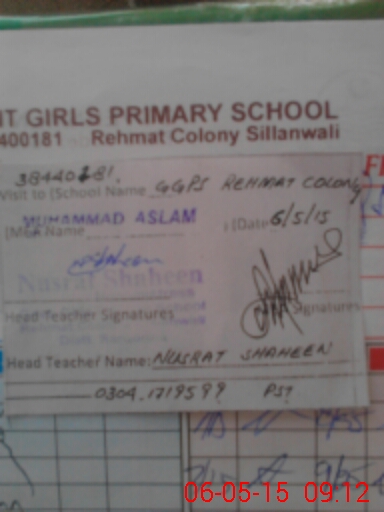 T GIRLS PRIMARY SCHOOL
400181 Rehmat Colony Sillanwali
38440181.
Visit to (School Name GGPS REHMAT COLONY
(MEA Name MUHAMMAD ASLAM (Date 6/5/15
Nusrat Shaheen
Head Teacher Signatures Signatures
Head Teacher Name: NUSRAT SHAHEEN
0304.1719599 PST
06-05-15 09:12